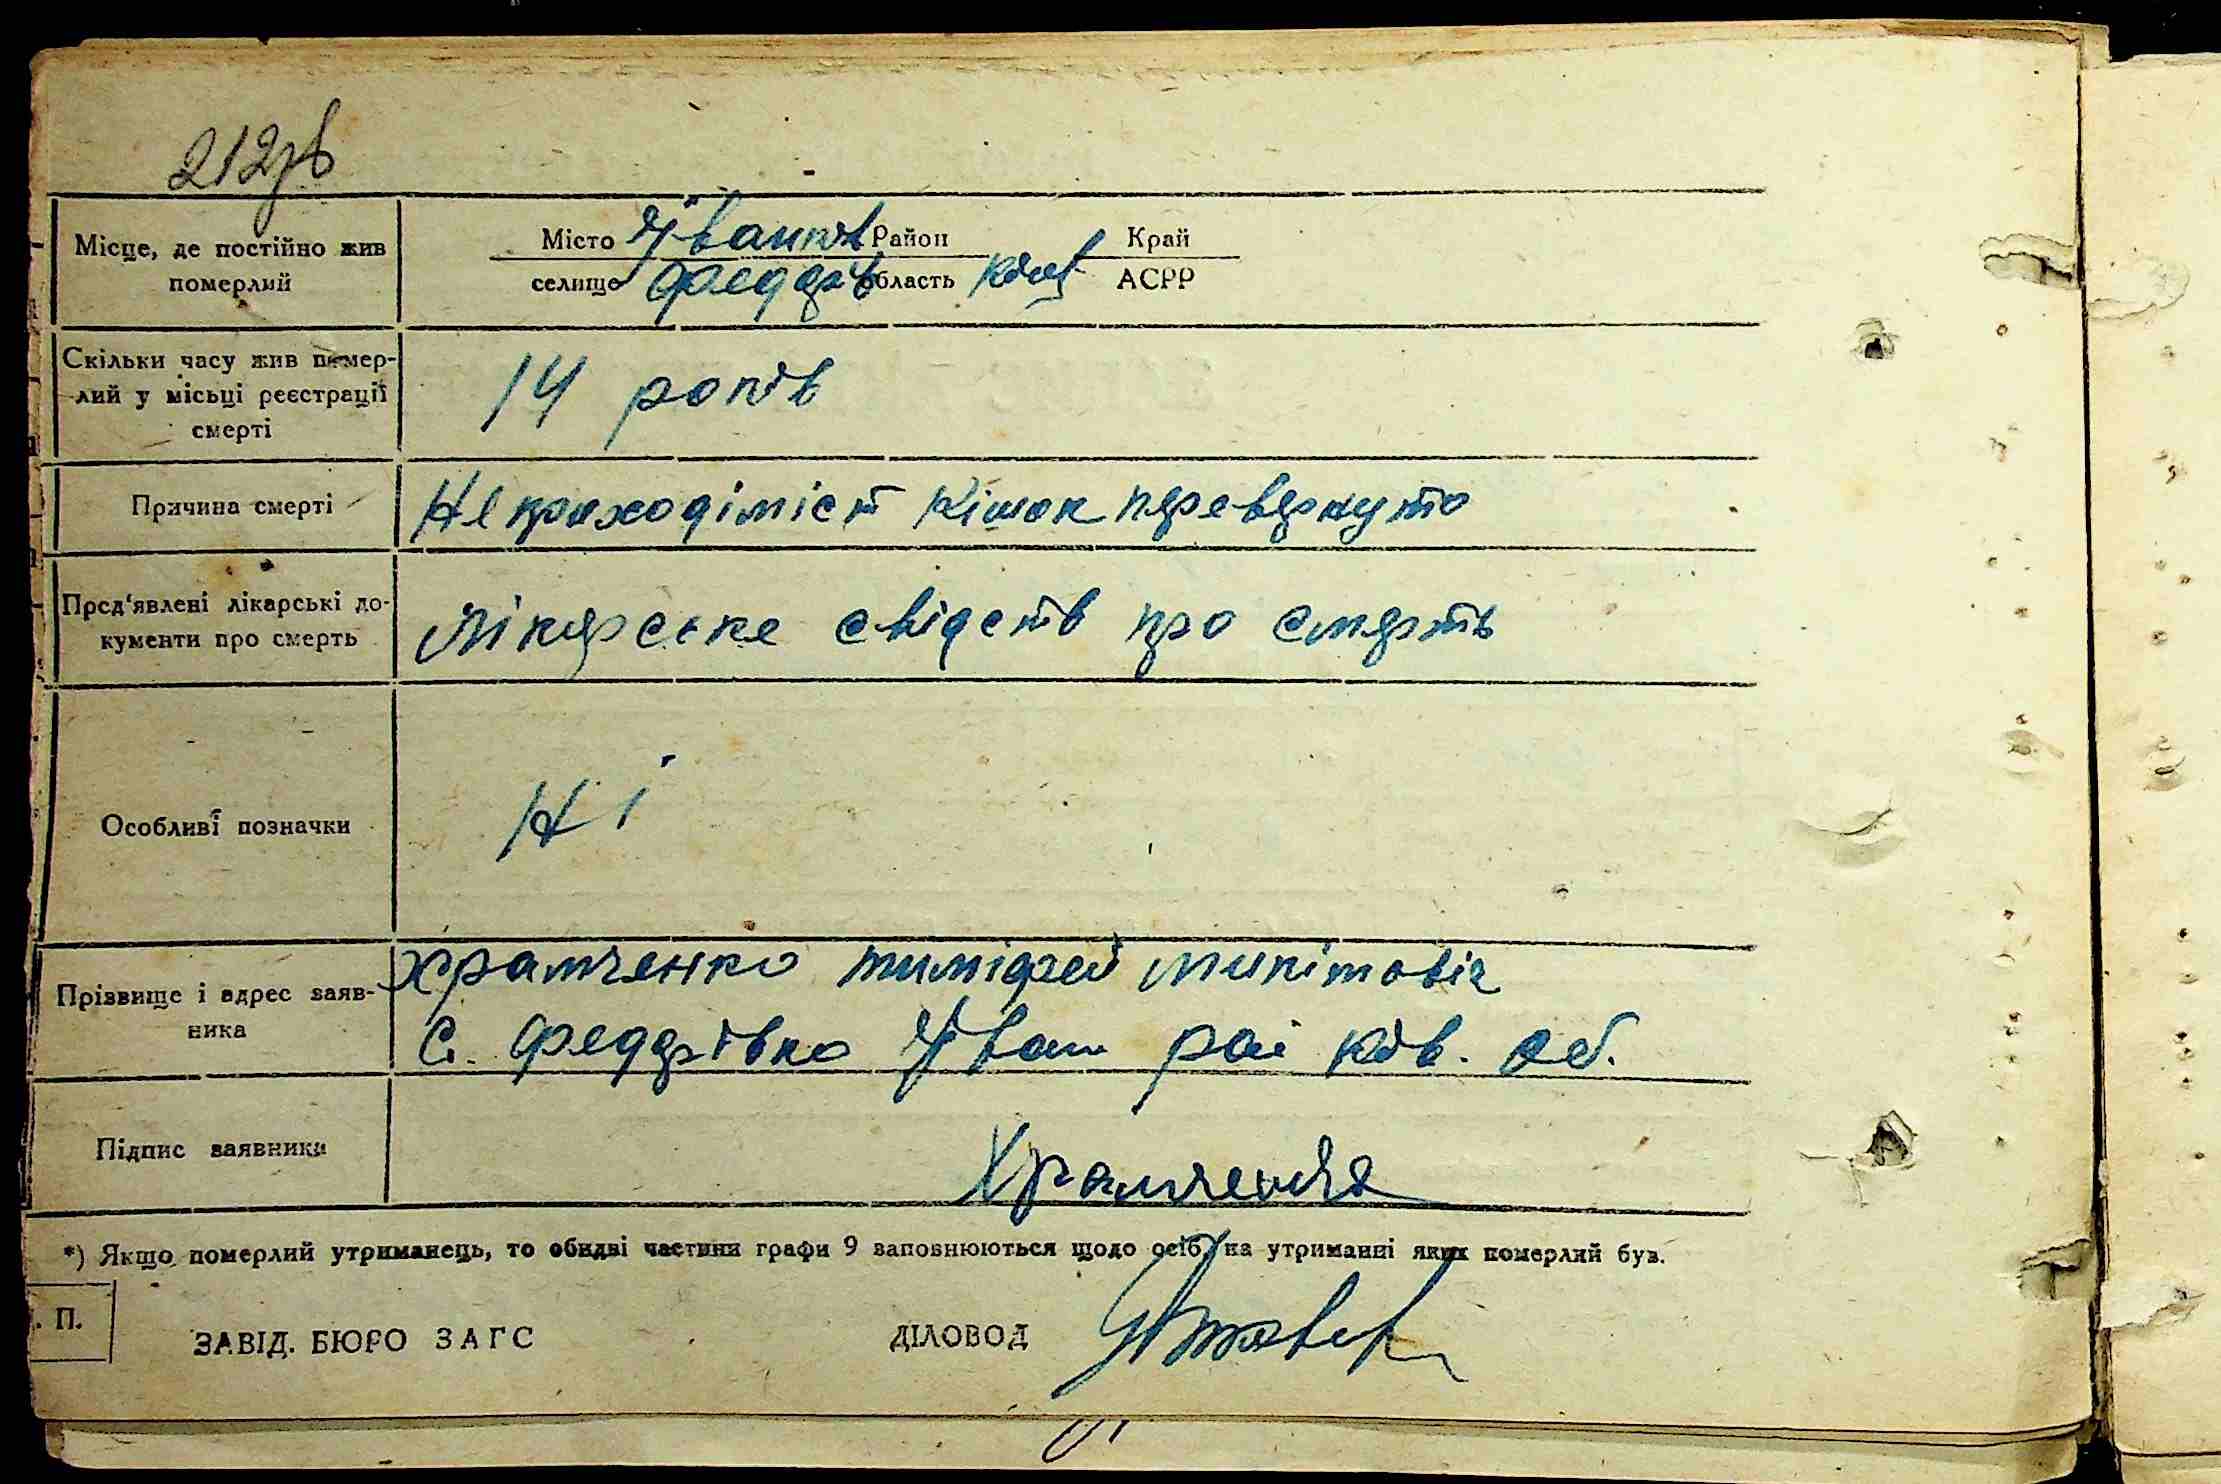 212зв
Місце, де постійно жив
померлий
Місто Іванків Район Край
селище Федорів область Київ АСРР
Скільки часу жив помер-
лий у місьці реєстрації
смерті
14 років
Причина смерті
Непроходіміст Кішок перевернуто
Пред'явлені лікарські до-
кументи про смерть
Лікарське свідств про смерть
Особливі позначки
Ні
Прізвище і адрес заяв-
ника
Храмченко тимофей микитовіч
С. Федорівка Іван рай Ків. об.
Підпис заявника
Храмченко
*) Якщо померлий утриманець, то обидві частини графи 9 заповнюються щодо осіб, на утриманні яких померлий був.
. П.
ЗАВІД. БЮРО ЗАГС
ДІЛОВОД